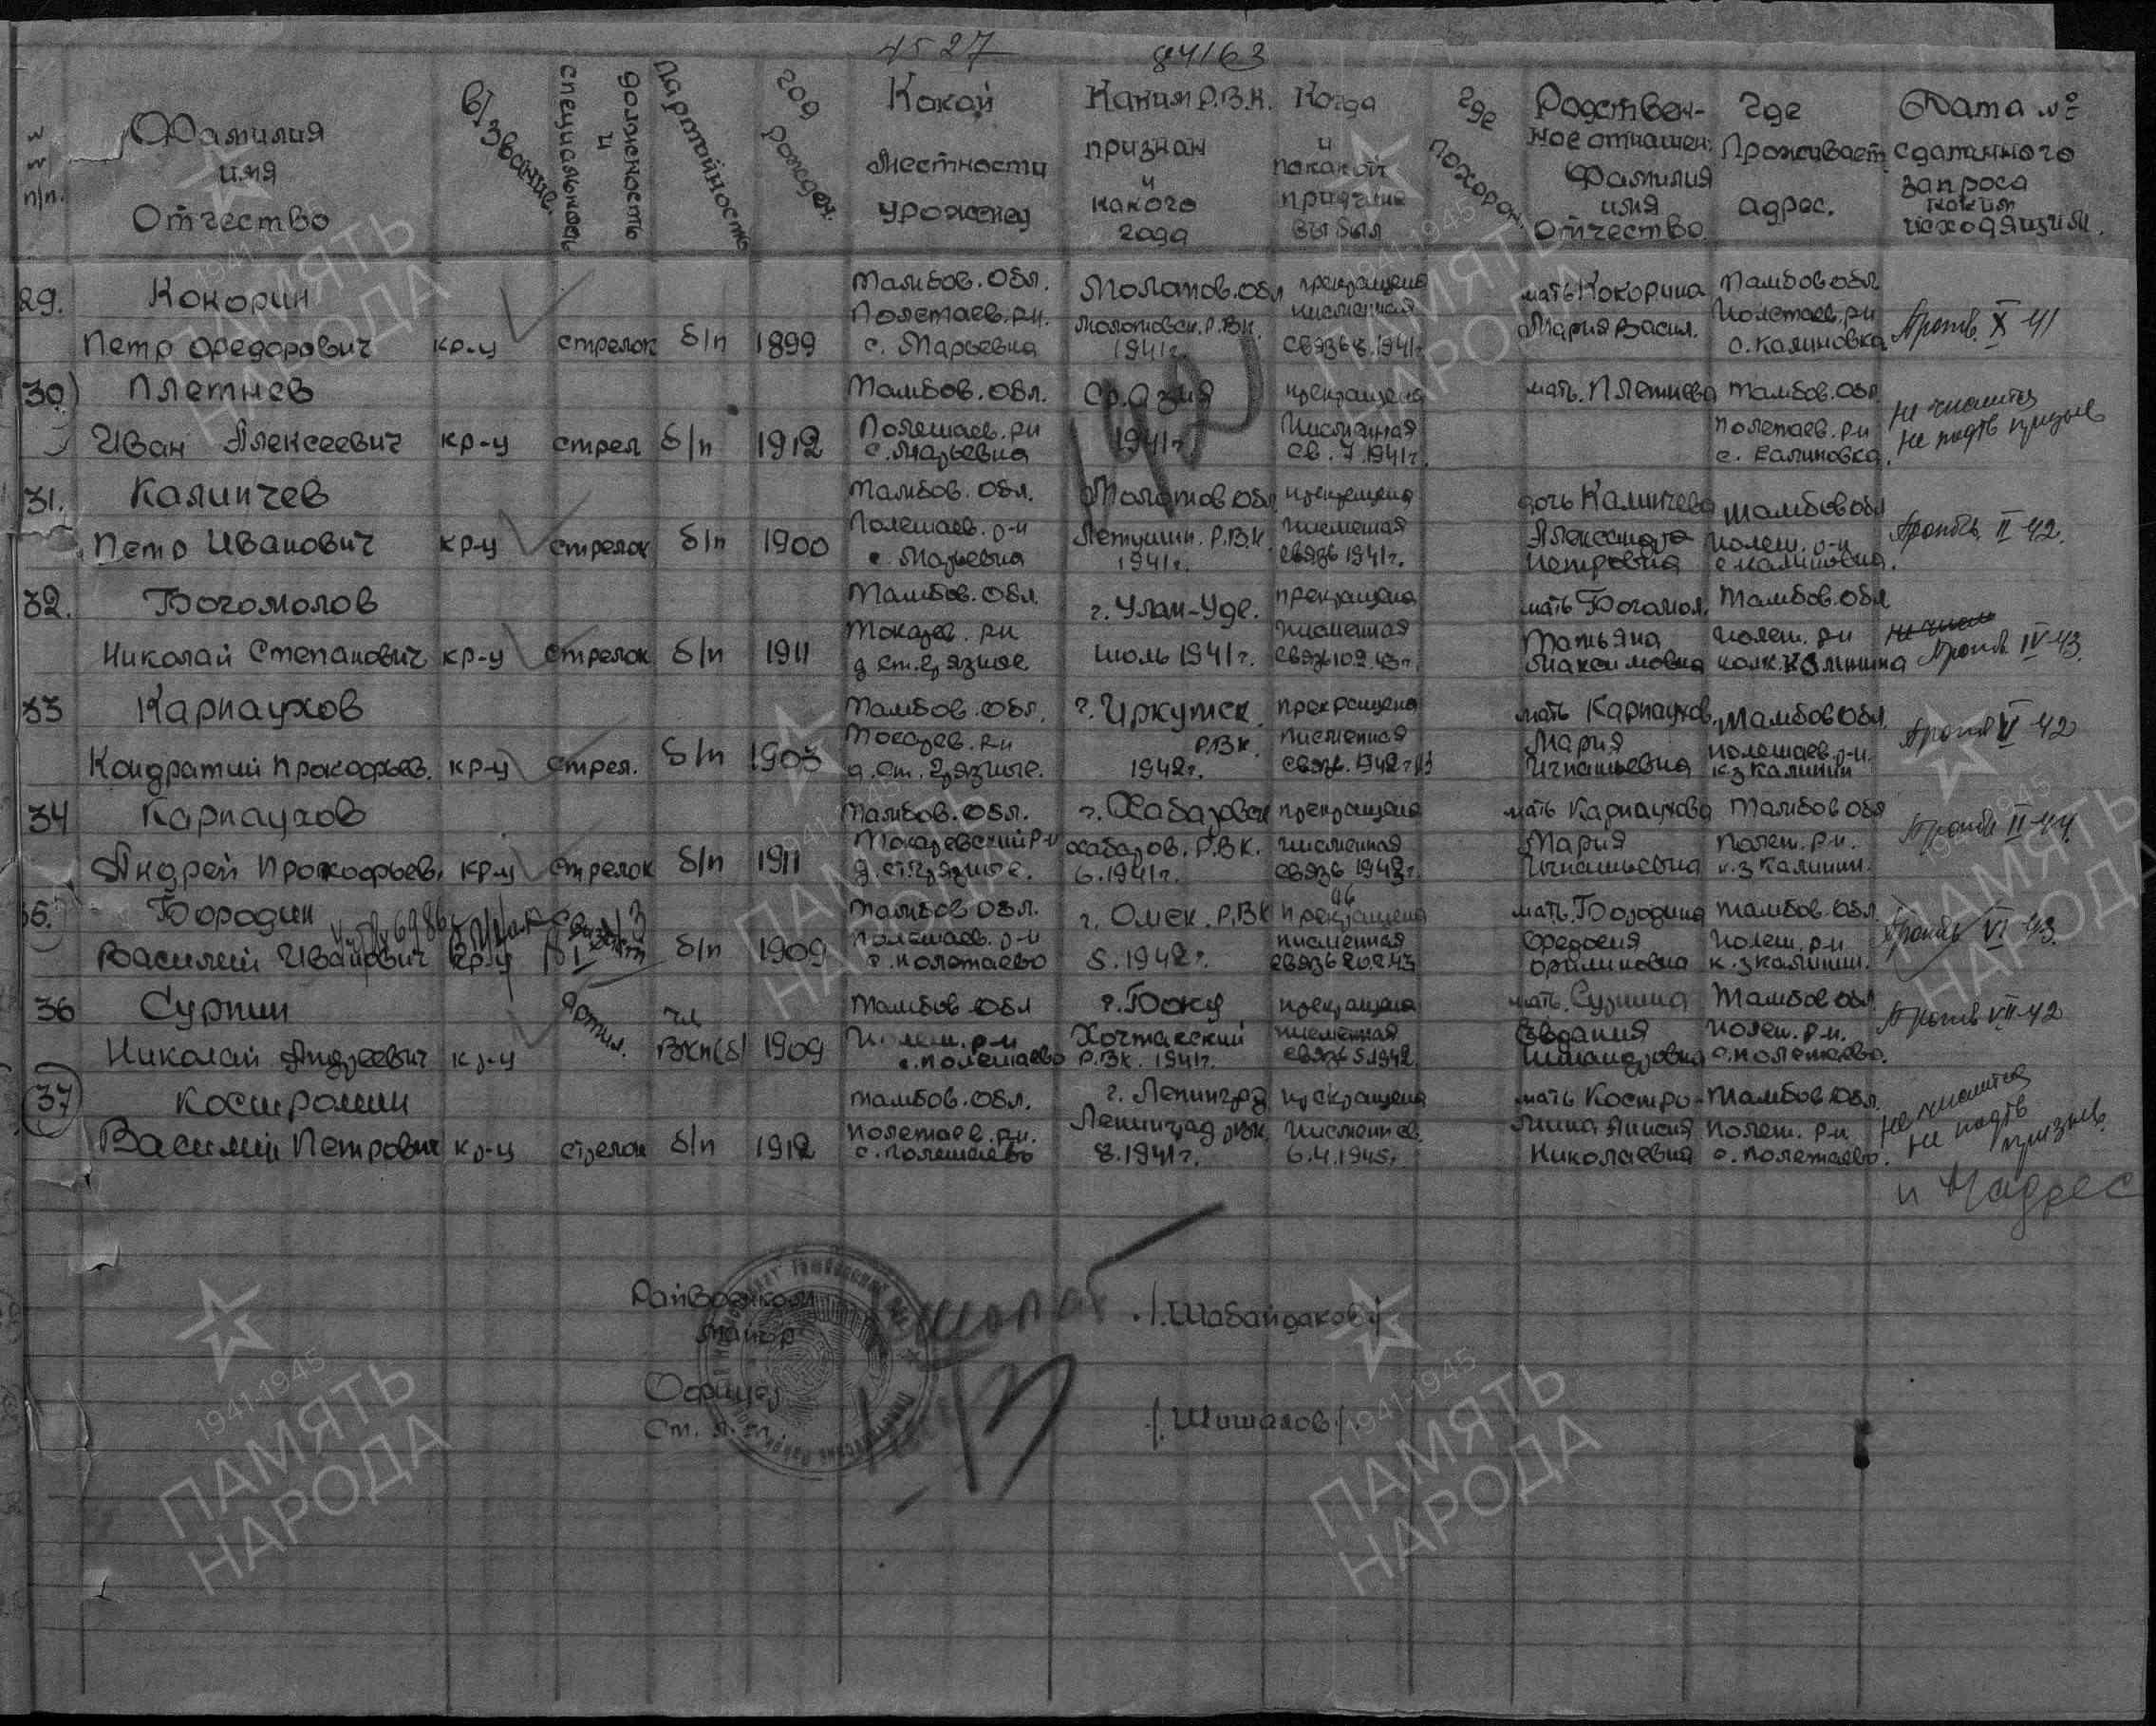 4527 84163
№ № п/п.
Фамилия имя Отчество
В/звание.
специальность и должность
Партийность
год рожден.
Какой местности урожнец
Каким Р.В.К. призван и какого года
Когда и по какой причине выбыл
где похорон.
Родствен- ное отношен. Фамилия имя Отчество
Где Проживает адрес.
Дата № сделанного запроса каким исходящим.
29. Кокорин Тамбов. Обл. Молотов. обл прекращена мать Кокорина Тамбов обл
Полетаев. р-н. Молотовск. Р.В.К. письменная Мария Васил. Полетаев. р-н
Петр Федорович кр-ц стрелок б/п 1899 с. Марьевка 1941г. связь 8.1941г. с. Калиновка X 41
30) Плетнев Тамбов. Обл. Ср. Азия прекращена мать. Плетнева Тамбов. Обл
Иван Алексеевич кр-ц стрел б/п 1912 Полетаев. р-н с. Марьевка 1941г. письменная св. 7.1941г. Полетаев. р-н с. Калиновка.
не числится не подтв призыв
31. Калинчев Тамбов. Обл. Молотов обл прекращена дочь Калинчева Тамбов обл
Петр Иванович кр-ц стрелок б/п 1900 Полетаев. р-н с. Марьевка Р.В.К. 1941г. письменая связь 1941г. Александра Петровна Полет. р-н с Калиновка. II 42.
32. Богомолов Тамбов. Обл. г. Улан-Удэ. прекращена мать Богомол. Тамбов. обл
Николай Степанович кр-ц стрелок б/п 1911 Токарев. р-н д ст. Грязное. июль 1941г. письменная связь 10.2.43г. Татьяна Максимовна Полет. р-н колх. Калинина IV 43.
33 Карпаухов Тамбов. Обл. г. Иркутск прекращена мать Карпаухов. Тамбов обл.
Кондратий Прокофьев. кр-ц стрел. б/п 1903 Токарев. р-н д. ст. Грязное. Р.В.К. 1942г. письменная связь. 1942г Мария Игнатьевна Полетаев. р-н. к-з Калинин V 42
34 Карпаухов Тамбов. Обл. г. Хабаровск прекращена мать Карпаухова Тамбов обл
Андрей Прокофьев. кр-ц стрелок б/п 1911 Токаревский р-н д. ст. Грязное. Хабаров. Р.В.К. 6.1941г. письменная связь Мария Игнатьевна Полет. р-н. к-з Калинин. II 44.
Бородин Тамбов Обл. г. Омск. Р.В.К прекращена мать. Бородина Тамбов. Обл.
Василий Иванович кр-ц б/п 1909 Полетаев. р-н с. Полетаево 5.1942г. письменная связь 20.2.43 Федосия Филиповна Полет. р-н к-з Калинин. VI 43.
36 Сурпин Тамбов. Обл г. Боку прекращена мать. Тамбов обл.
Николай Андреевич кр-ц Артил. чл ВКП(б) 1909 Полет. р-н с. Полетаево Р.В.К. 1941г. письменная связь 5.1942 Евдокия Полет. р-н. с. Полетаево. VII 42
37 Костромин Тамбов. Обл. г. Ленинград прекращена мать Костро- Тамбов Обл.
Василий Петрович кр-ц стрелок б/п 1912 Полетаев. р-н. с. Полетаево Ленинград рвк. 8.1941г. письменнов. 6.4.1945г. мина Анисия Николаевна Полет. р-н с. Полетаево.
не числится не подтв призыв. и адрес
Райвоенком
Майор /Шабайдаков/
Офицер
Ст. /Шишалов/
1941-1945 ПАМЯТЬ НАРОДА